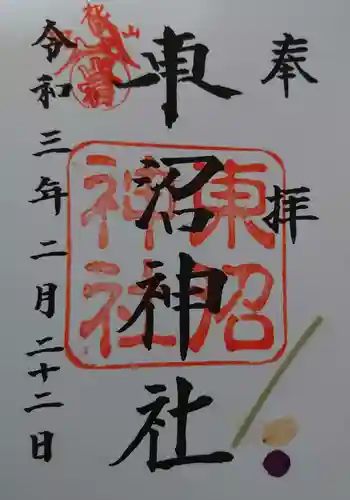 奉拝
東沼神社
東沼
神社
令和三年二月二十二日